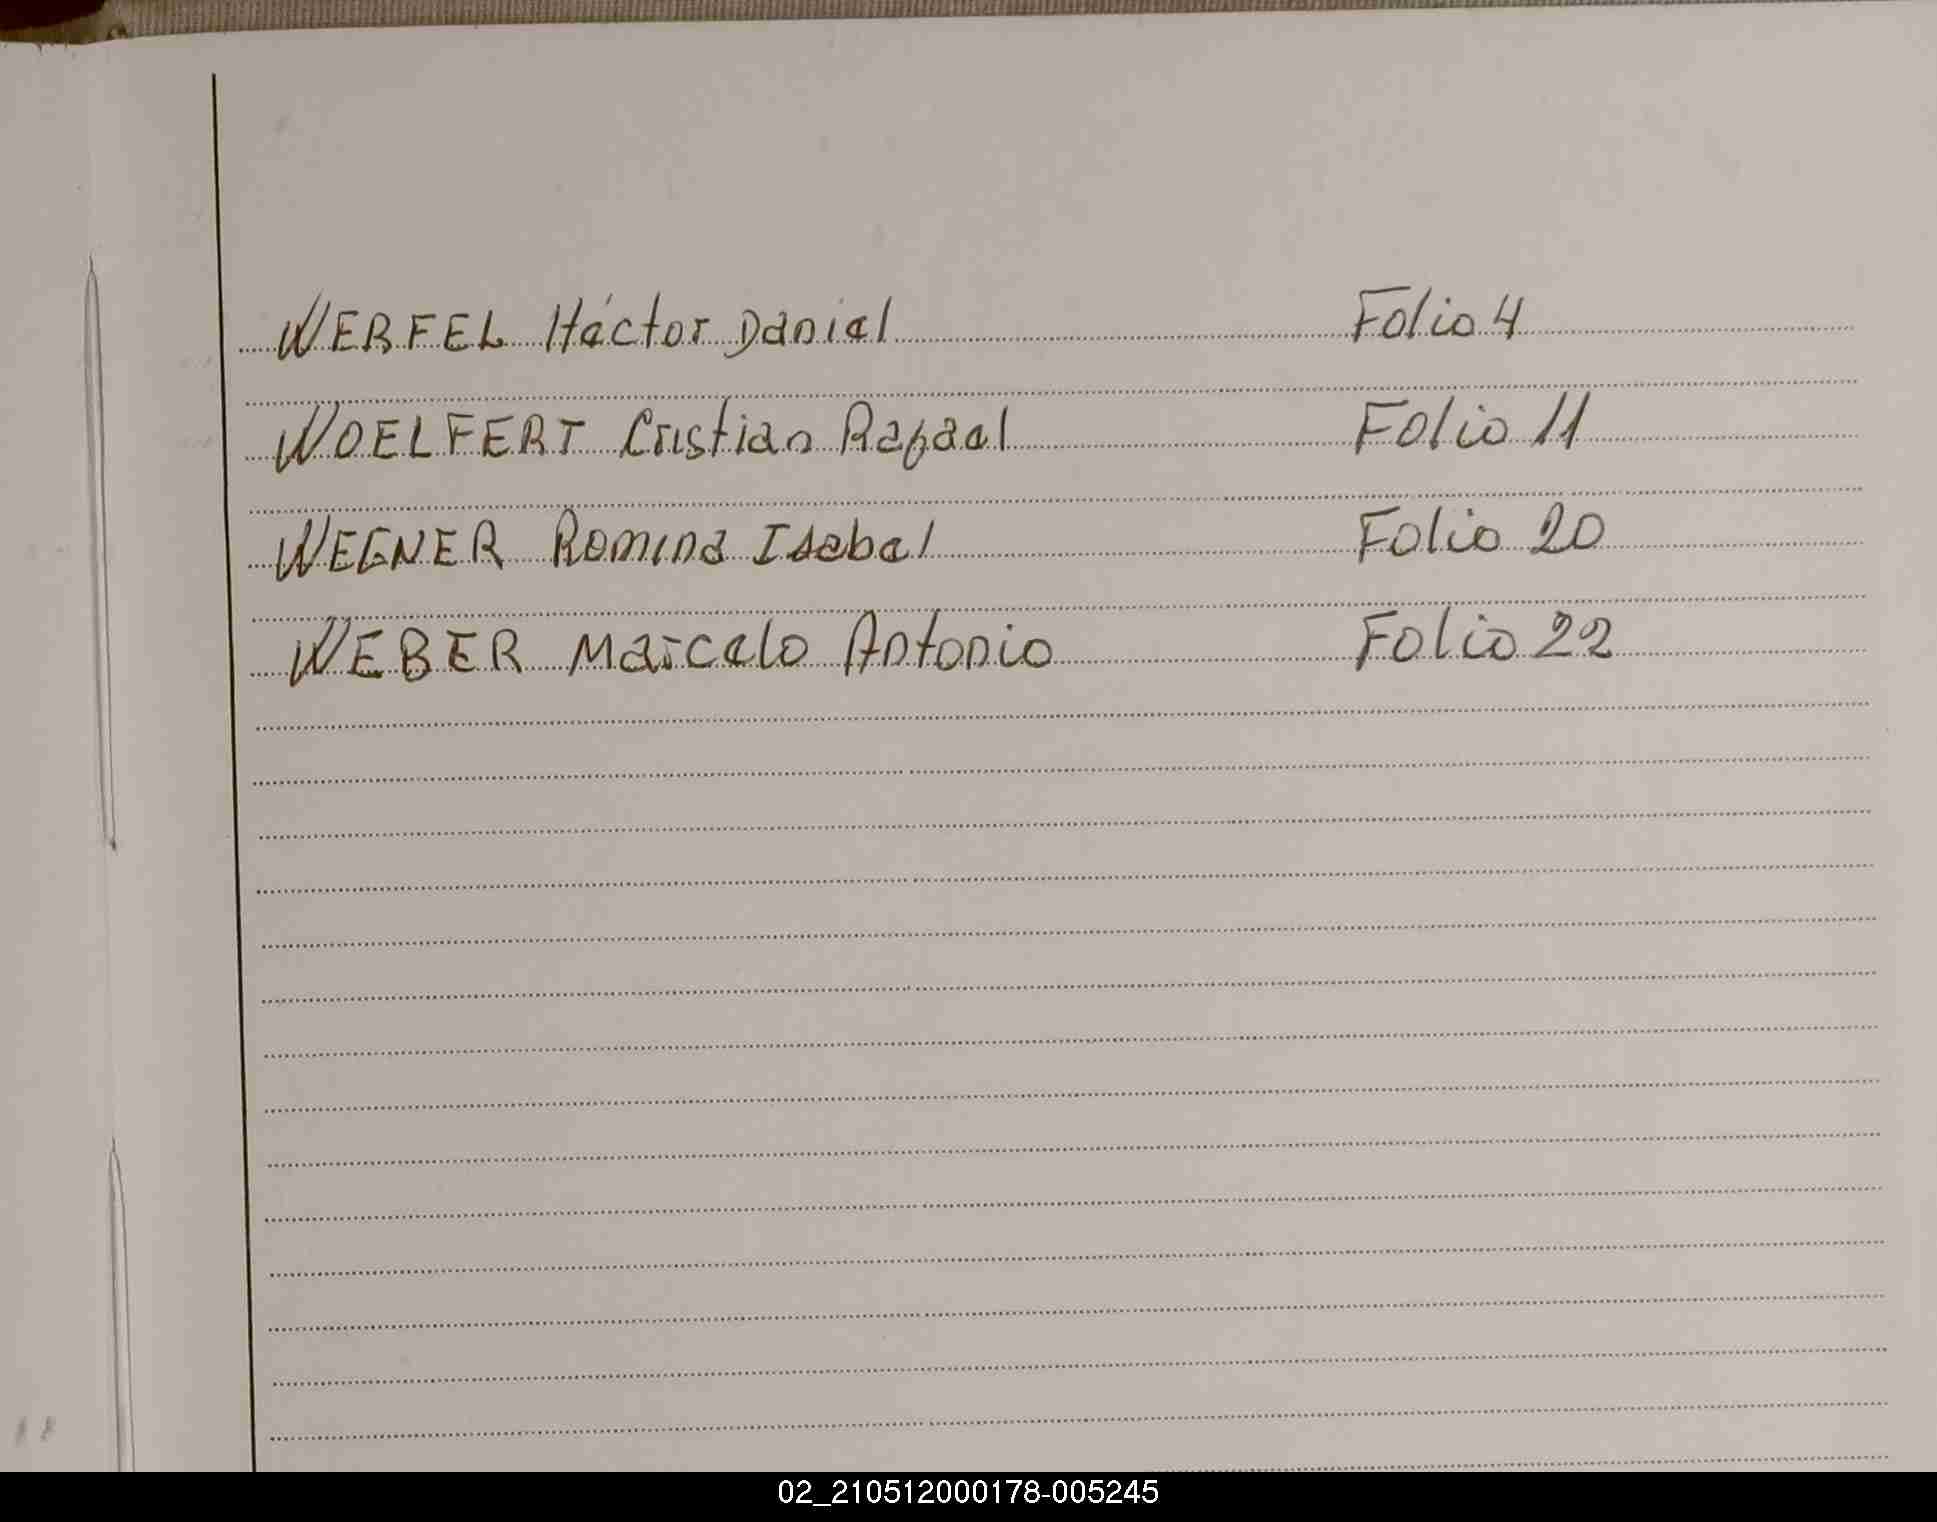 WERFEL Héctor Daniel Folio 4
WOELFERT Cristian Rafael Folio 11
WEGNER Romina Isabel Folio 20
WEBER Marcelo Antonio Folio 22
02_210512000178-005245